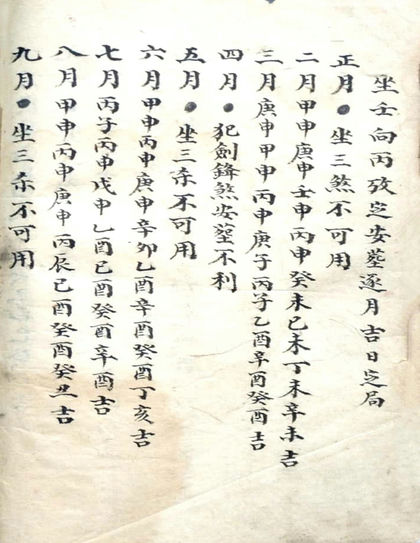 坐壬向丙攷定安塟逐月吉日定局
正月●坐三煞不可用
二月甲申庚申壬申丙申癸未己未丁未辛未吉
三月庚申甲申丙申庚子丙子乙酉辛酉癸酉吉
四月●犯劍鋒煞安塟不利
五月●坐三杀不可用
六月甲申丙申庚申辛卯乙酉辛酉癸酉丁亥吉
七月丙子丙申戊申乙酉己酉癸酉辛酉吉
八月甲申丙申庚申丙辰己酉癸酉癸丑吉
九月●坐三杀不可用